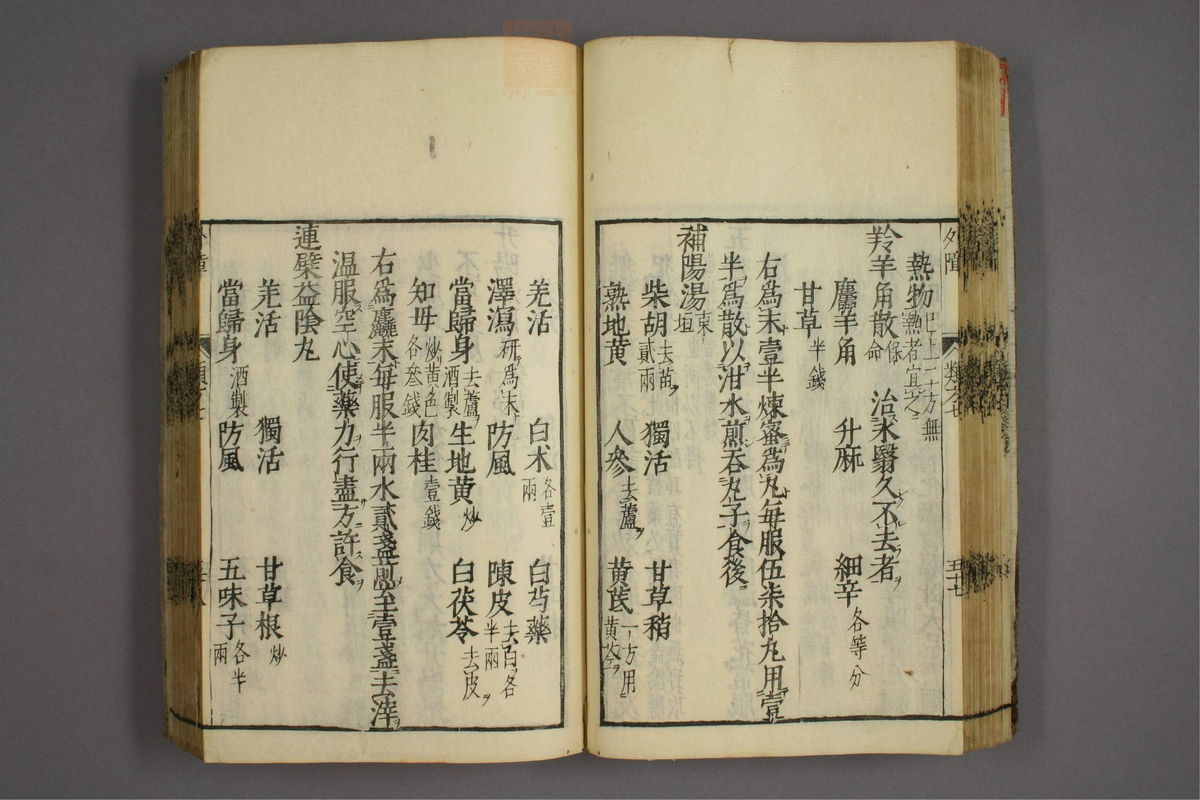 熱物 已上二方無熱者宜之
羚羊角散 保命 治氷翳久不去者
麢羊角 升麻 細辛 各等分
甘草 半錢
右爲末壹半煉蜜爲丸每服伍柒拾丸用壹
半爲散以泔水煎吞丸子食後
補陽湯 東垣
柴胡 去苗貳兩 獨活 甘草稍
熟地黄 人參 去蘆 黄芪 一方用黄芩
五十七
羌活 白朮 各壹兩 白芍藥
澤瀉 研爲末 防風 陳皮 去白各半兩
當歸身 去蘆酒製 生地黄 炒 白茯苓 去皮
知母 炒黄色各叁錢 肉桂 壹錢
右爲麤末每服半兩水貳盞煎至壹盞去滓
温服空心使藥力行盡方許食
連檗益陰丸
羌活 獨活 甘草根 炒
當歸身 酒製 防風 五味子 各半兩